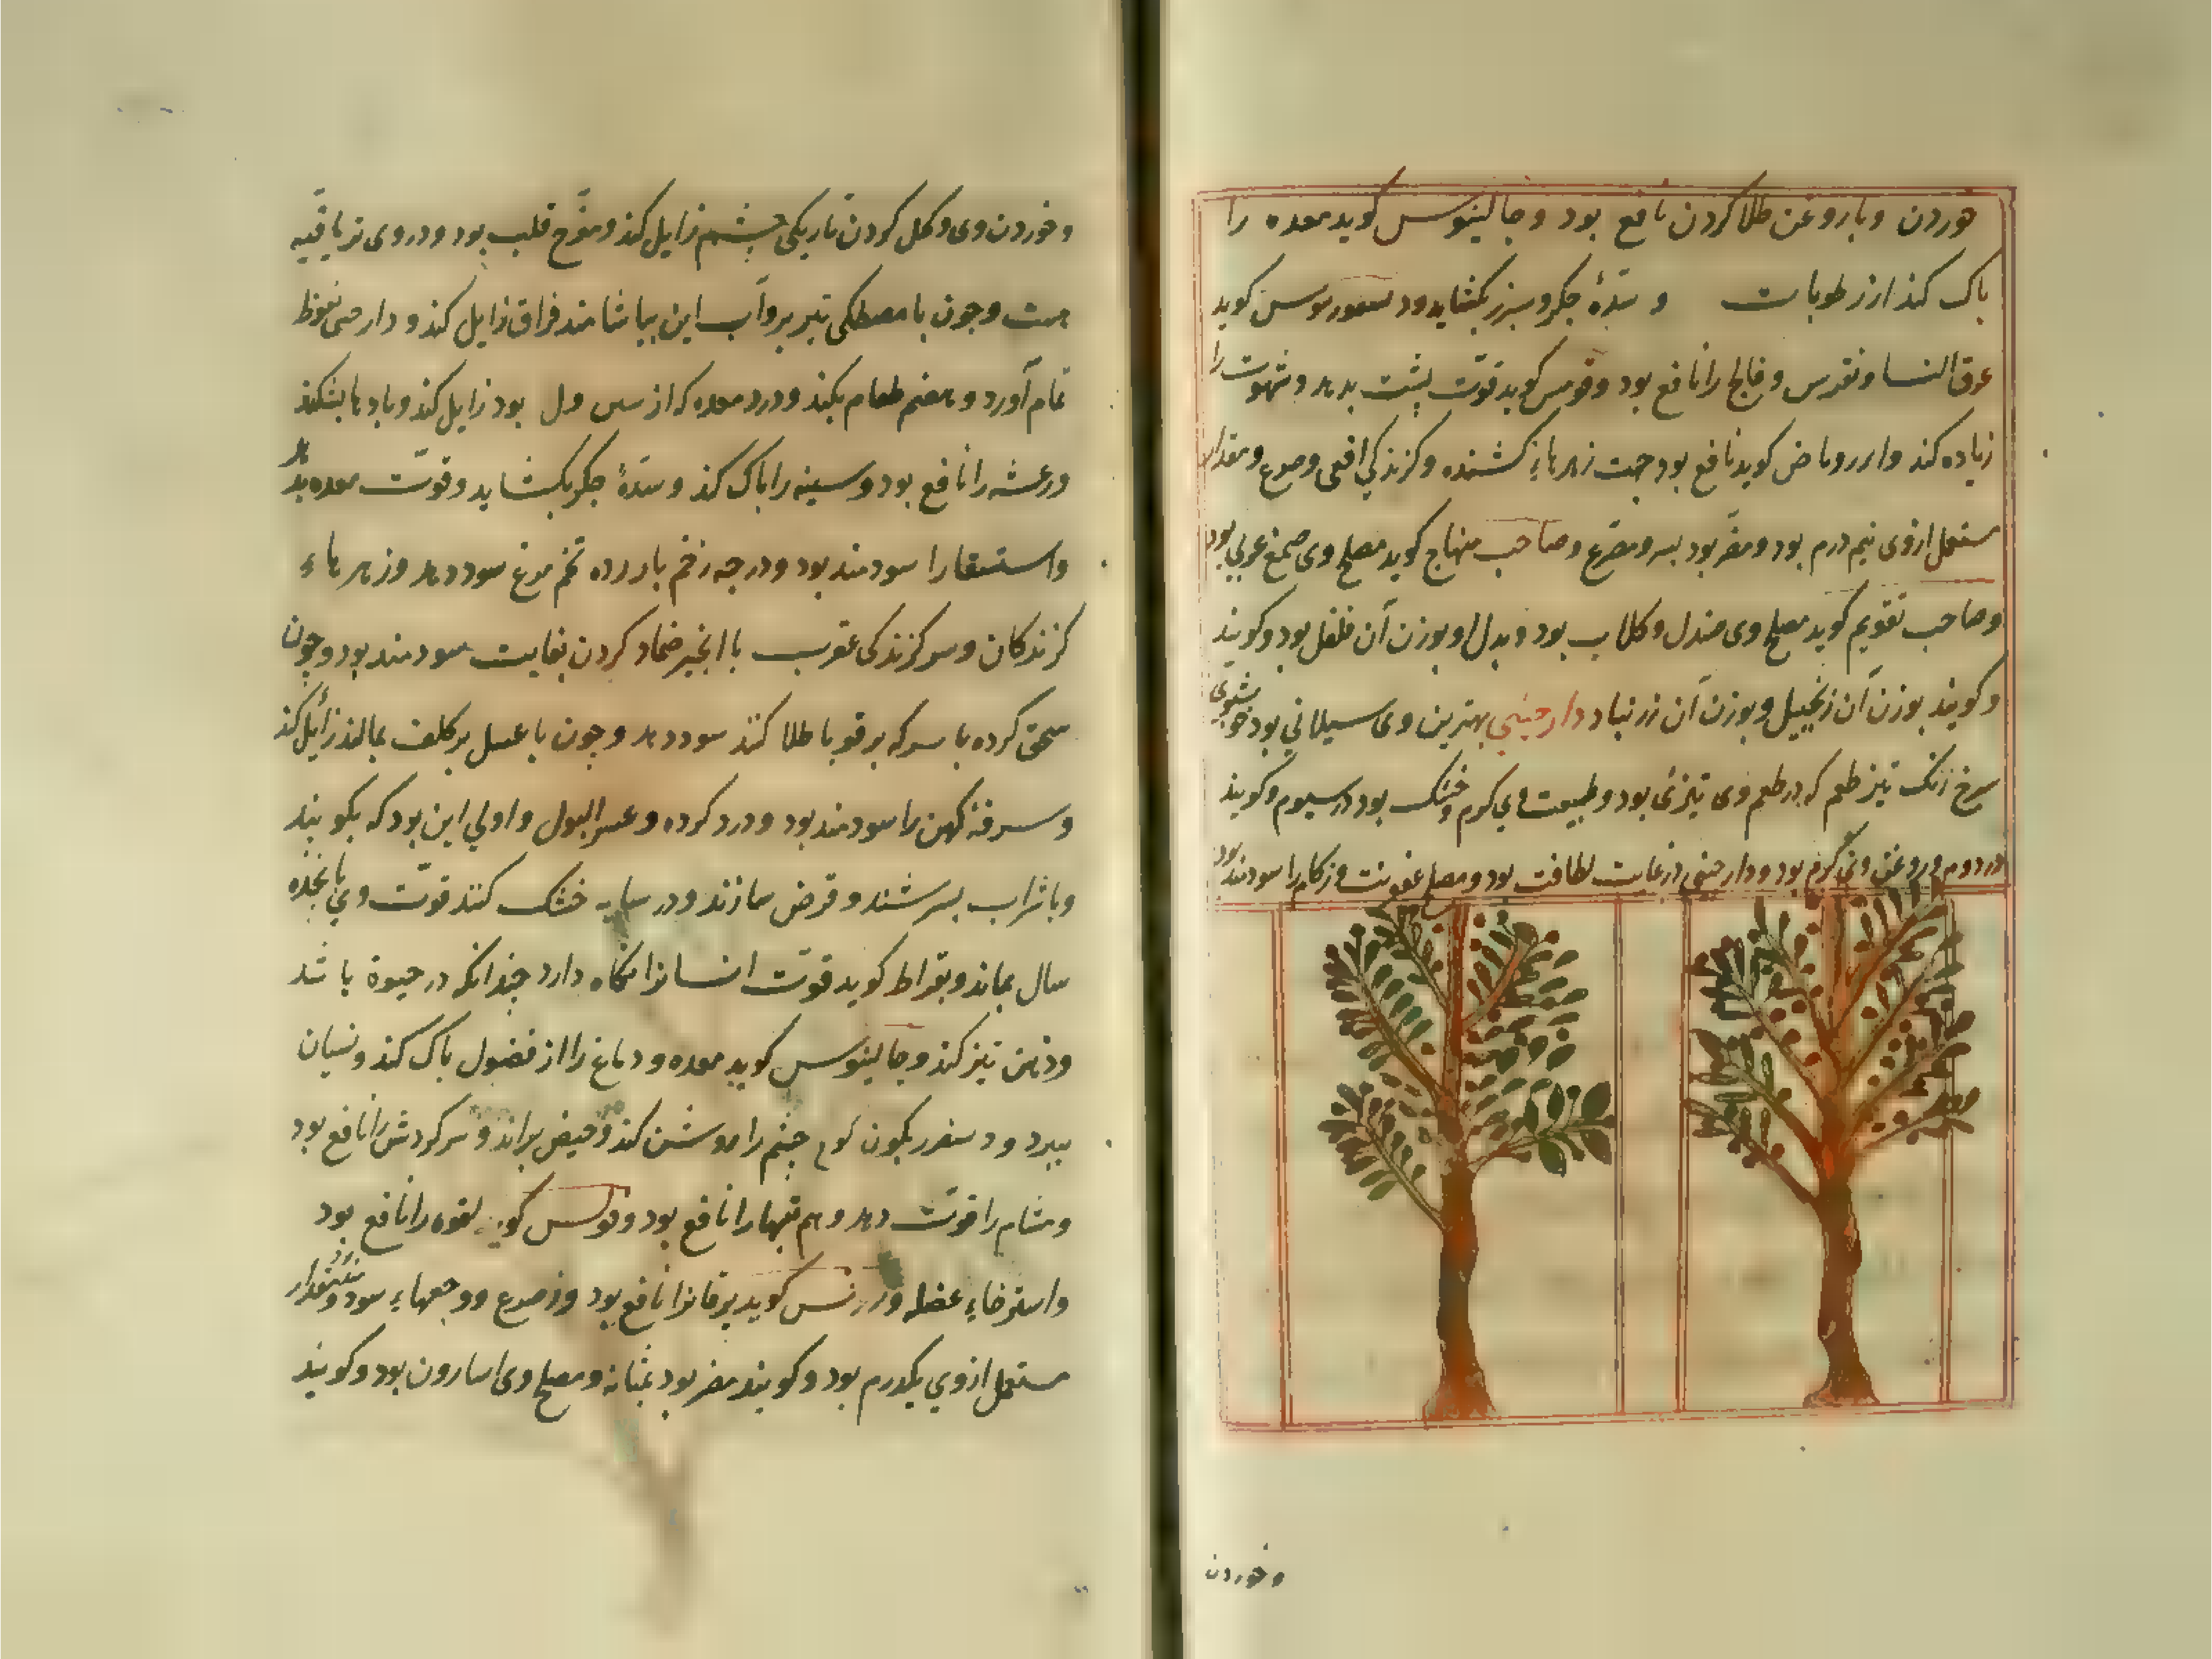 خوردن و با روغن طلا کردن نافع بود و جالینوس کوید معده را
باک کند از رطوبات و سدّهٔ جکر و سبرز بکشاید و کوید
عرق النسا و نقرس و فالج را نافع بود و کوید قوّت بشت بدهد و شهوت را
زیاده کند و کوید نافع بود جهت زهرهاء کشنده و کزندکی افعی و صرع و مقدار
مستعمل ازوی نیم درم بود و مضرّ بود بسر و مصدّع و صاحب منهاج کوید مصلح وی صمغ عربی بود
و صاحب تقویم کوید مصلح وی صندل و کلاب بود و بدل او بوزن آن فلفل بود و کویند
و کویند بوزن آن زنجبیل و بوزن آن زرنباد دارجینی بهترین وی سیلانی بود خوشبوی
سرخ رنک تیز طعم که در طعم وی تیزئی بود و طبیعت وی کرم و خشک بود در سیوم و کویند
در دوم و روغن وی کرم بود و دارجینی در غایت لطافت بود و مصلح عفونت و زکام را سودمند بود
و خوردن
و خوردن وی و کحل کردن تاریکی جشم زایل کند و مفرّح قلب بود و در وی تریاقیّه
هست و جون با مصطکی تیر برو آب این بیاشامند فواق زایل کند و دارصی نعوظ
تمام آورد و هضم طعام بکند و درد معده که از بود زایل کند و بادها بشکند
و رعشه را نافع بود و سینه را باک کند و سدّهٔ جکر بکشاید و قوّت معده بدهد
و استسقا را سودمند بود و درجه زخم تخم مرغ سود دهد و زهرهاء
کزندکان و سر کزندکی عقرب با انجیر ضماد کردن بغایت سودمند بود و جون
سحق کرده با سرکه بر قوبا طلا کنند سود دهد و جون با عسل بر کلف بمالند زائل کند
و سرفهٔ کهن را سودمند بود و درد کرده و عسر البول و اولی این بود که بکوبند
و با شراب بسرشند و قرص سازند و در سایه خشک کنند قوّت وی بانجده
سال بماند و بقراط کوید قوّت انسانرا نکاه دارد جندانکه در حیوة باشد
و ذهن تیز کند و جالینوس کوید معده و دماغ را از فضول باک کند و نسیان
ببرد و جشم را روشن کند و حیض براند و سرکردش را نافع بود
و مشام را قوّت دهد و هم تبها را نافع بود و فولس کوید لقوه را نافع بود
و استرخاء عضله و کوید یرقانرا نافع بود و صرع و وجعهاء سودمند بود و مقدار
مستعمل ازوی یکدرم بود و کویند مضر بود بمثانه و مصلح وی اسارون بود و کویند